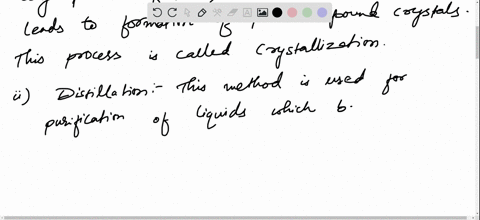 leads to formation of pound crystals.
This process is called Crystallization.
ii) Distillation:- This method is used for
purification of liquids which b.